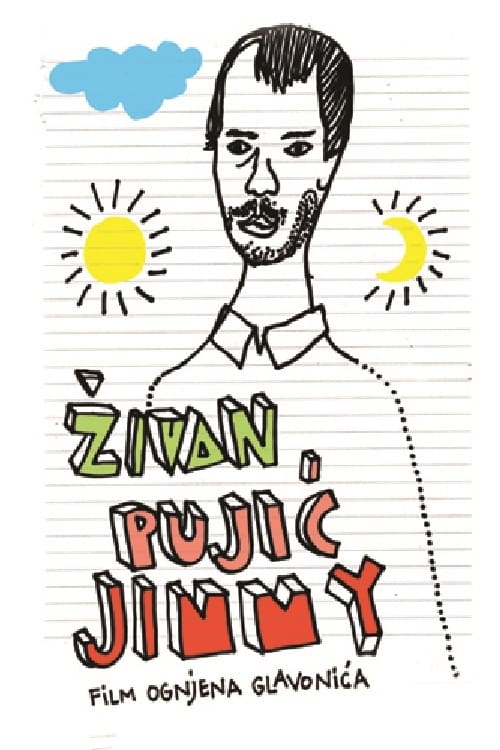 ŽIVAN
PUJIĆ
JIMMY
FILM OGNJENA GLAVONIĆA